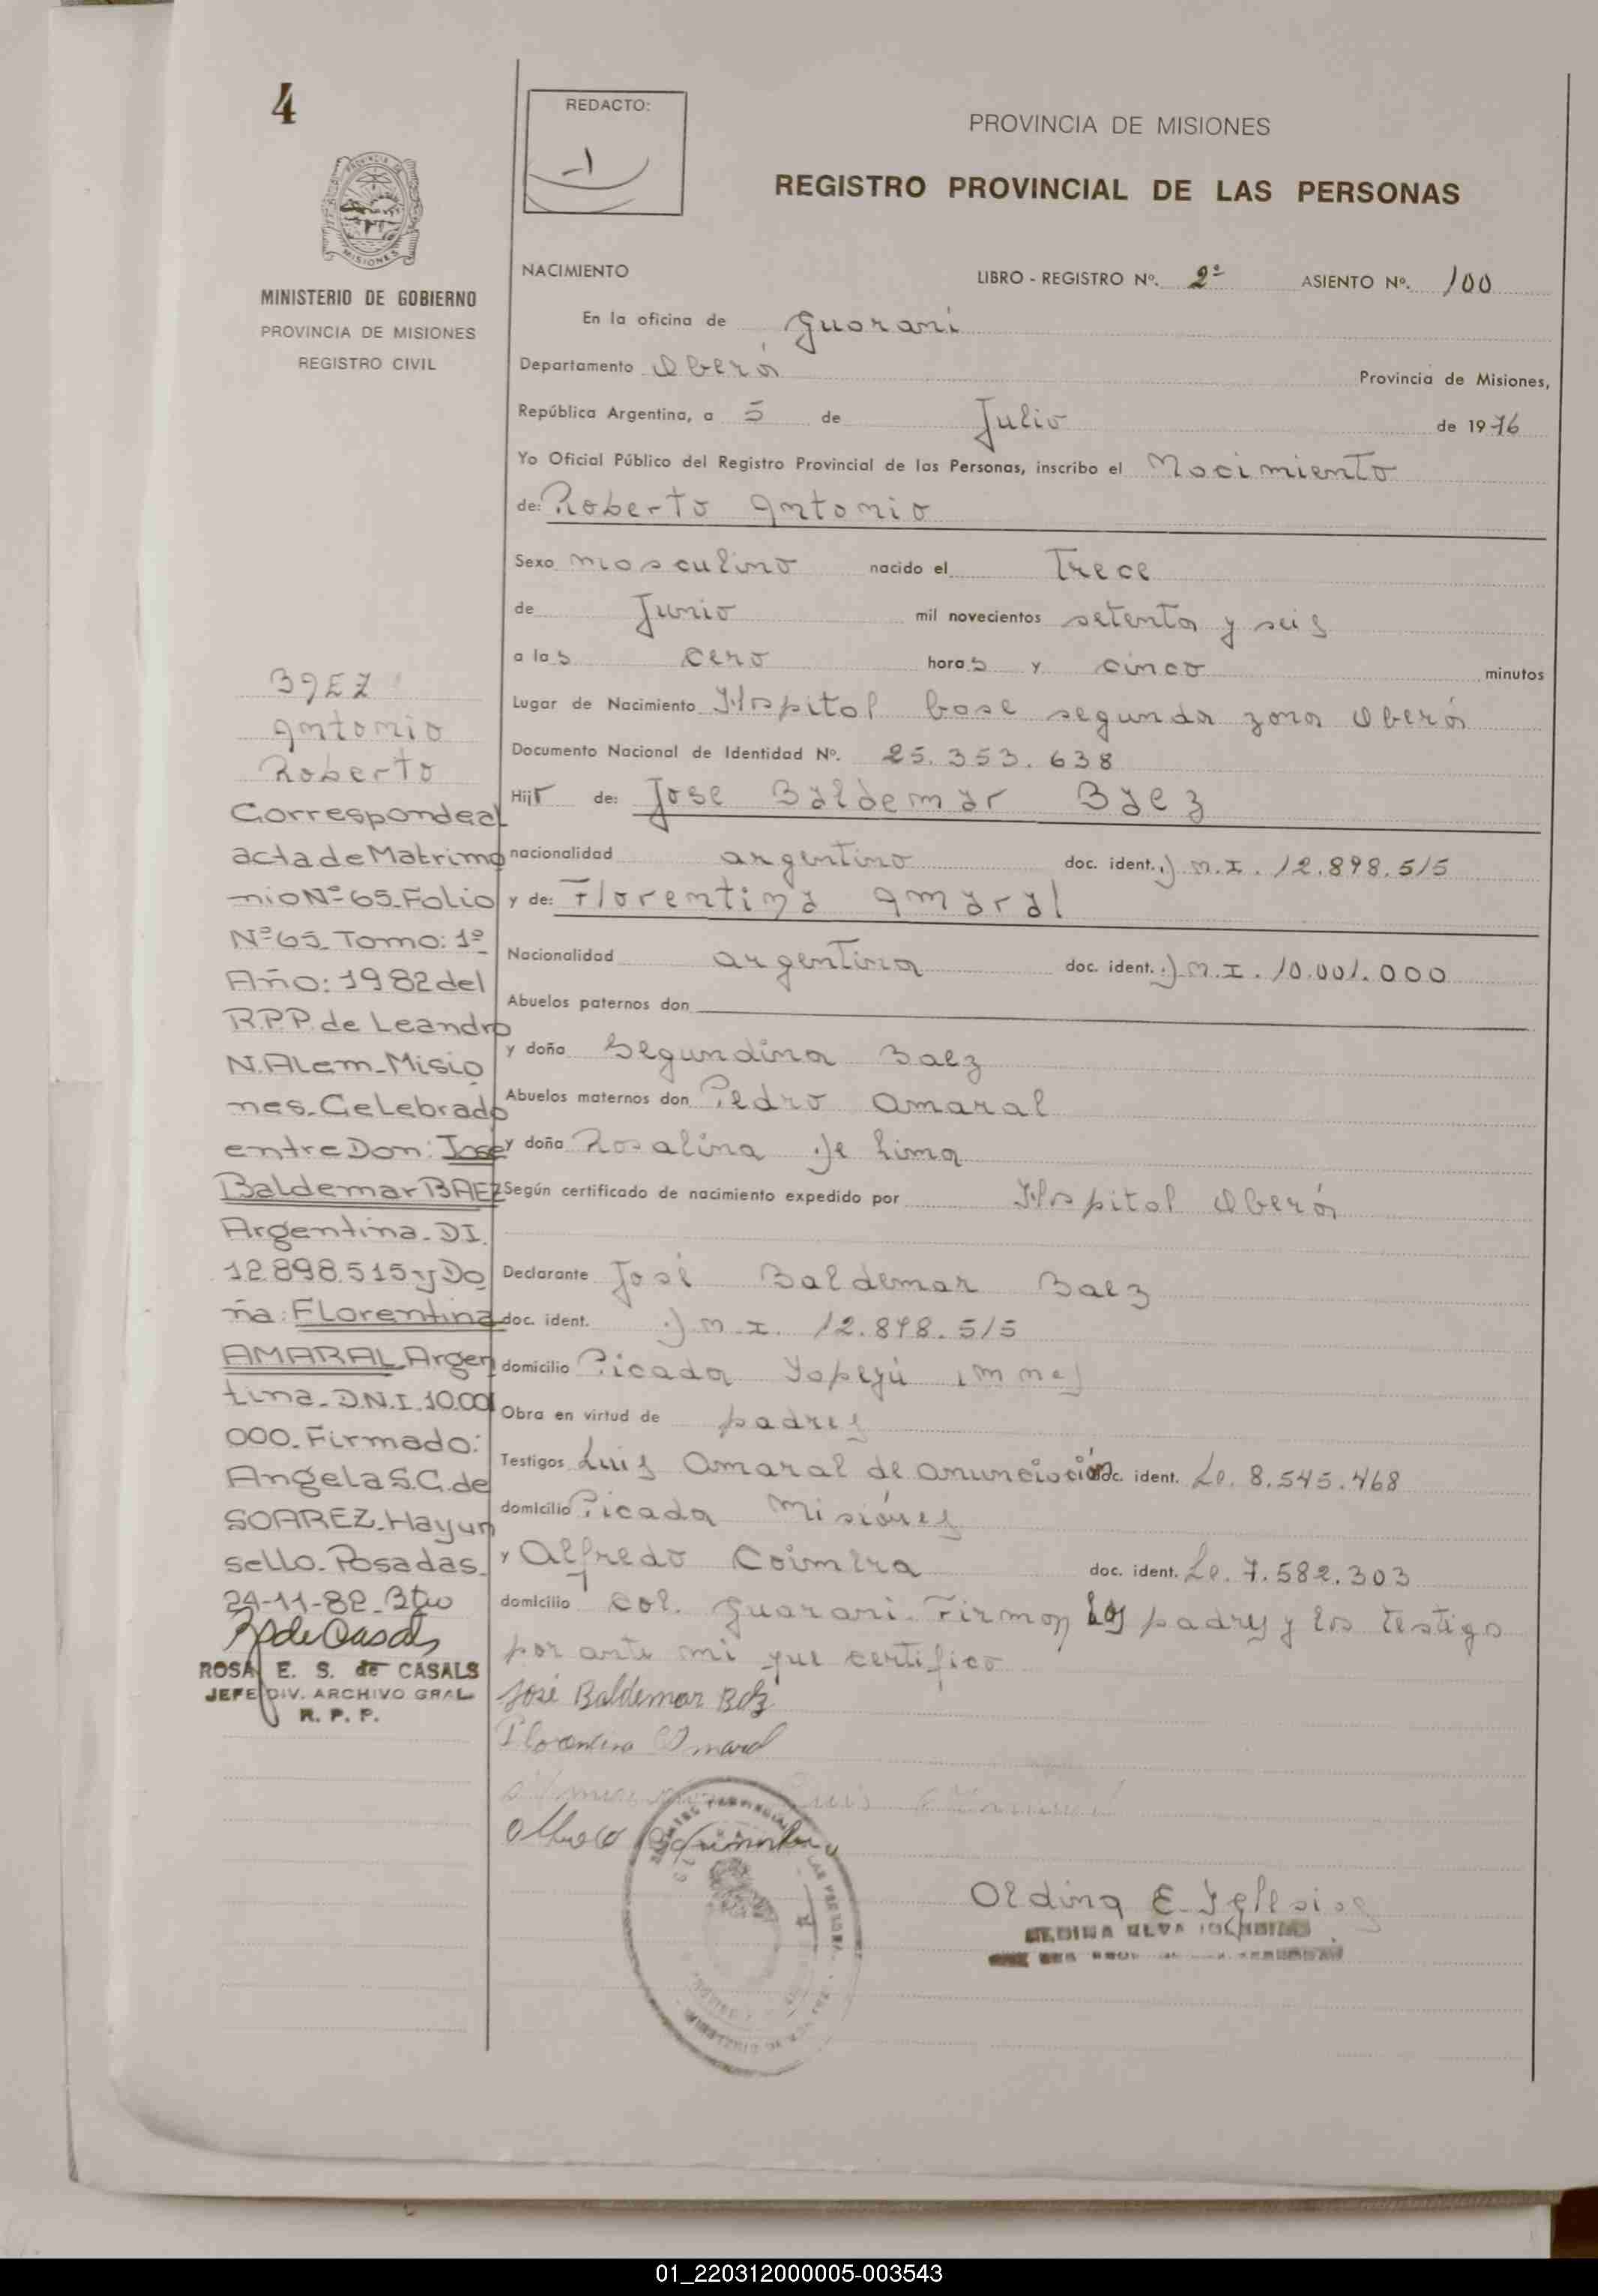 4
REDACTO:
PROVINCIA DE MISIONES
REGISTRO PROVINCIAL DE LAS PERSONAS
MINISTERIO DE GOBIERNO
PROVINCIA DE MISIONES
REGISTRO CIVIL
NACIMIENTO LIBRO - REGISTRO Nº. 2º ASIENTO Nº. 100
En la oficina de Guarani
Departamento Oberá Provincia de Misiones,
República Argentina, a 5 de Julio de 1976
Yo Oficial Público del Registro Provincial de las Personas, inscribo el Nacimiento
de: Roberto Antonio
Sexo masculino nacido el Trece
de Junio mil novecientos setenta y seis
a las cero horas y cinco minutos
Lugar de Nacimiento Hospital base segunda zona Oberá
Documento Nacional de Identidad Nº. 25.353.638
Hijo de: Jose Baldemar Baez
nacionalidad argentino doc. ident. M.I. 12.898.515
y de: Florentina Amaral
Nacionalidad argentina doc. ident. M.I. 10.001.000
Abuelos paternos don
y doña Segundina Baez
Abuelos maternos don Pedro Amaral
y doña Rosalina de Lima
Según certificado de nacimiento expedido por Hospital Oberá
Declarante José Baldemar Baez
doc. ident. M.I. 12.898.515
domicilio Picada Yapeyú
Obra en virtud de padres
Testigos Luis Amaral de anunciación doc. ident. Le. 8.545.468
domicilio Picada Misiones
y Alfredo Coimbra doc. ident. Le. 7.582.303
domicilio Col. Guarani. Firman los padres y los testigo
por ante mi que certifico
José Baldemar Baez
Florentina Amaral
Luis
BAEZ
Antonio
Roberto
Corresponde al
acta de Matrimo
nio Nº 65. Folio
Nº 65. Tomo: 1º
Año: 1982 del
R.P.P. de Leandro
N. Alem. Misio
nes. Celebrado
entre Don: Jose
Baldemar BAEZ
Argentina. DI.
12.898.515 y Do
ña: Florentina
AMARAL Argen
tina. D.N.I. 10.001
000. Firmado:
Angela S.C. de
SOAREZ. Hay un
sello. Posadas.
24-11-82.
ROSA E. S. de CASALS
JEFE DIV. ARCHIVO GRAL.
R. P. P.
01_220312000005-003543